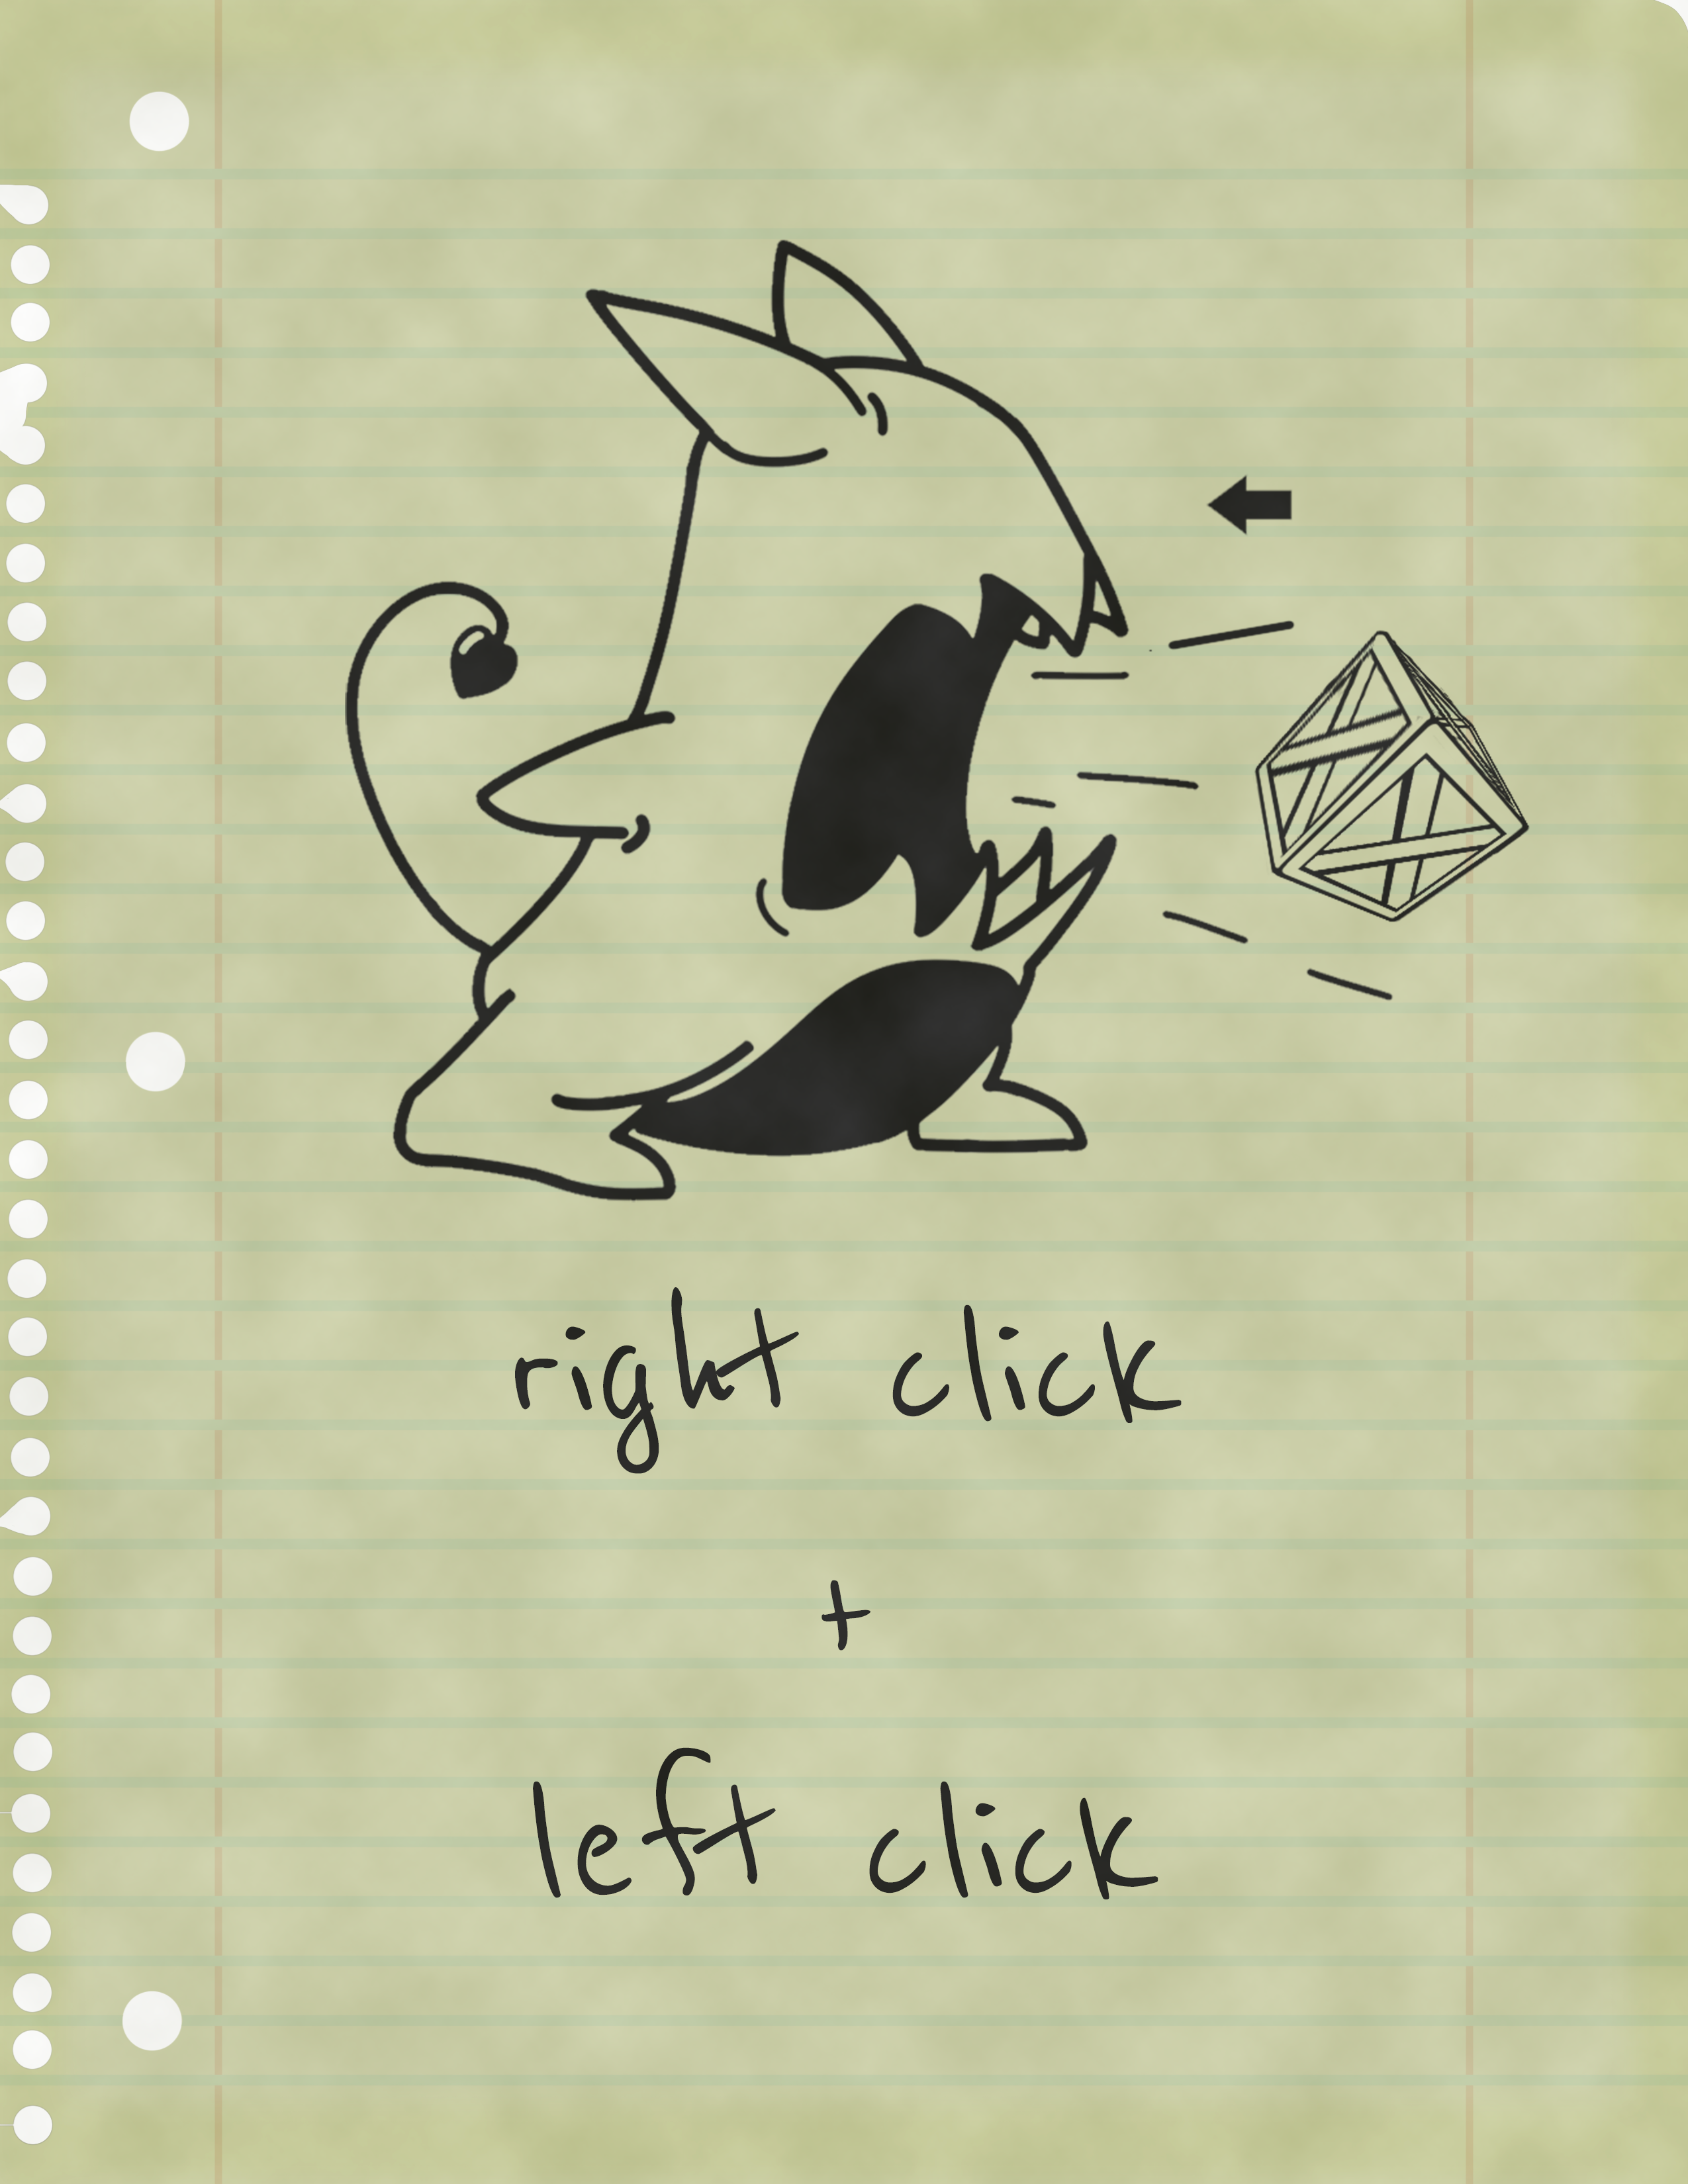 right click
+
left click